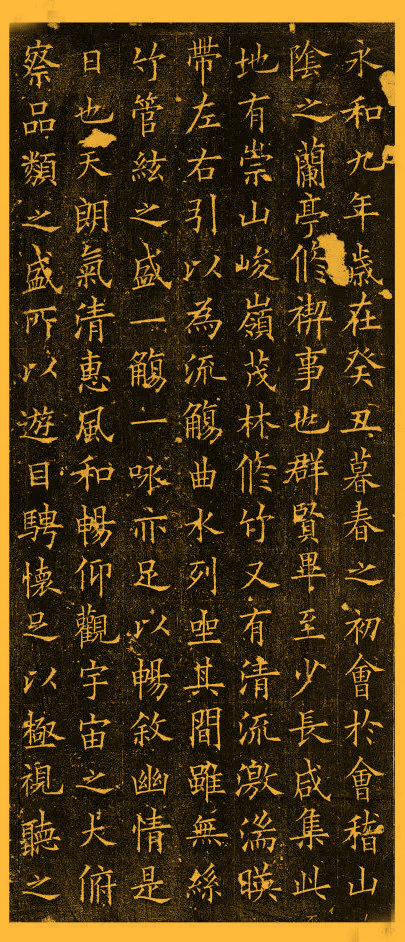 永和九年歲在癸丑暮春之初會於會稽山
陰之蘭亭修禊事也群賢畢至少長咸集此
地有崇山峻嶺茂林修竹又有清流激湍暎
帶左右引以為流觴曲水列坐其間雖無絲
竹管絃之盛一觴一咏亦足以暢敘幽情是
日也天朗氣清惠風和暢仰觀宇宙之大俯
察品類之盛所以遊目騁懷足以極視聽之